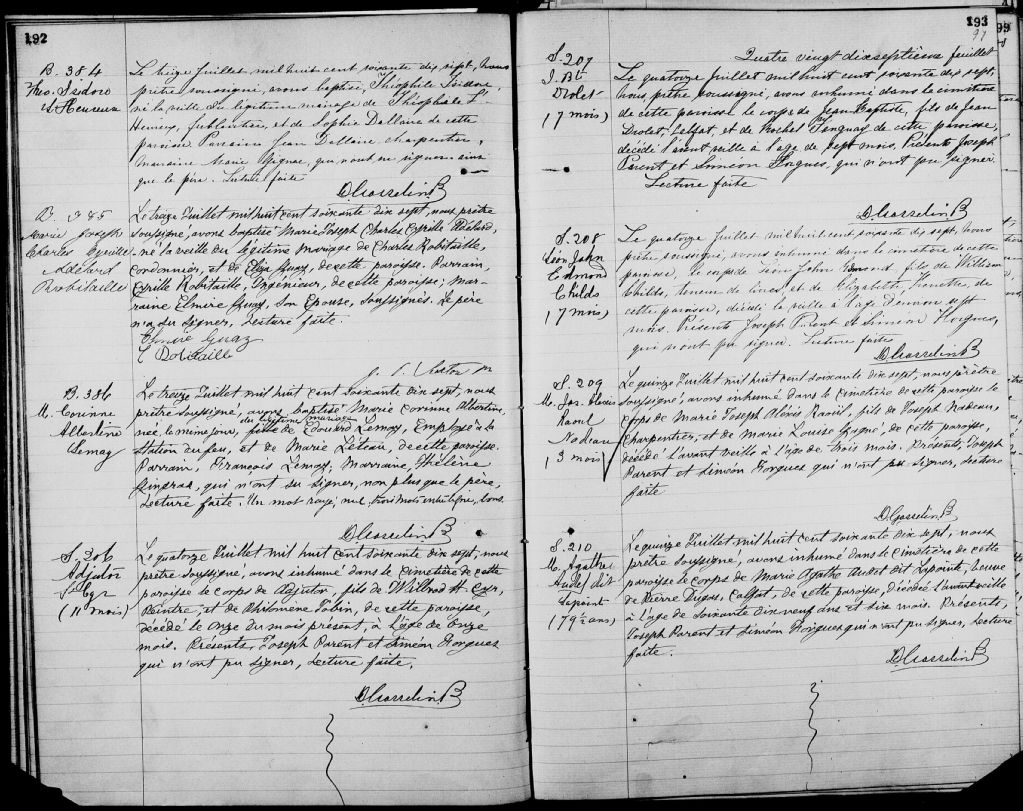 192
B. 384
Theo. Isidore
L'Heureux
Le treize Juillet mil huit cent soixante dix sept, nous
prêtre soussigné, avons baptisé, Théophile Isidore,
né la veille du légitime mariage de Théophile L'-
Heureux, ferblantier, et de Sophie Dallaire de cette
paroisse. Parrain Jean Dallaire charpentier,
marraine Marie Gignac, qui n'ont su signer ainsi
que le père. Lecture faite
D Gosselin B
B. 385
Marie Joseph
Charles Cyrille
Adélard
Robitaille
Le treize Juillet mil huit cent soixante dix sept, nous prêtre
soussigné, avons baptisé Marie Joseph Charles Cyrille Adélard,
né la veille du légitime mariage de Charles Robitaille,
cordonnier, et de Eliza Guay, de cette paroisse. Parrain,
Cyrille Robitaille, Ingénieur, de cette paroisse; Mar-
raine Elmire Guay, son épouse, soussignés. Le père
n'a su signer, lecture faite.
Elmire Guay
C Robitaille
B. 386
M. Corinne
Albertine
Lemay
Le treize Juillet mil huit cent soixante dix sept, nous
prêtre soussigné, avons baptisé Marie Corinne Albertine,
du légitime mariage
née le même jour, fille de Edouard Lemay, Employé à la
station du feu, et de Marie Léteau, de cette paroisse.
Parrain, François Lemay; Marraine, Hélène
qui n'ont su signer, non plus que le père,
Lecture faite. Un mot rayé, nul, trois mots interligne, bons.
D Gosselin B
S. 206
Adjutor
St Cyr
(11 mois)
Le quatorze Juillet mil huit cent soixante dix sept, nous
prêtre soussigné, avons inhumé dans le cimetière de cette
paroisse le corps de Adjutor, fils de Wilbrod St. Cyr,
Peintre, et de Philomène Tobin, de cette paroisse,
décédé le onze du mois présent, à l'âge de Onze
mois. Présents, Joseph Parent et Siméon Horgues
qui n'ont pu signer, lecture faite.
D Gosselin B
193
97
Quatre vingt dixseptième feuillet
S. 207
J. Bte
Drolet
(7 mois)
Le quatorze Juillet mil huit cent soixante dix sept,
nous, prêtre soussigné, avons inhumé dans le cimetière
de cette paroisse le corps de Jean Baptiste, fils de Jean
Drolet, Calfat, et de Rachel Tanguay de cette paroisse,
décédé l'avant veille à l'age de sept mois. Présents Joseph
Parent et Siméon Horgues, qui n'ont pu signer
Lecture faite
D Gosselin B
S. 208
Léon John
Edmond
Childs
(7 mois)
Le quatorze Juillet mil huit cent soixante dix sept, nous
prêtre soussigné, avons inhumé dans le cimetière de cette
paroisse, le corps de Léon John Edmond, fils de William
Childs, teneur de livres, et de Elizabeth de
cette paroisse, décédé la veille à l'age d'environ sept
mois. Présents Joseph Parent et Siméon Horgues,
qui n'ont pu signer. Lecture faite
D Gosselin B
S. 209
M. Jos. Alexis
Raoul
Nadeau
(3 mois)
Le quinze Juillet mil huit cent soixante dix sept, nous prêtre
soussigné, avons inhumé dans le cimetière de cette paroisse le
corps de Marie Joseph Alexis Raoul, fils de Joseph Nadeau,
Charpentier, et de Marie Louise Gagné, de cette paroisse,
décédé l'avant veille à l'âge de trois mois. Présents, Joseph
Parent et Siméon Horgues qui n'ont pu signer, lecture
faite
D. Gosselin B
S. 210
M. Agathe
Audet dit
Lapointe
(79½ ans)
Le quinze Juillet mil huit cent soixante dix sept, nous
prêtre soussigné, avons inhumé dans le Cimetière de cette
paroisse le corps de Marie Agathe Audet dit Lapointe, veuve
de Pierre Dugas, Calfat, de cette paroisse, décédée l'avant veille
à l'âge de soixante dix neuf ans et dix mois. Présents,
Joseph Parent et Siméon Horgues qui n'ont pu signer, lecture
faite.
D Gosselin B
99